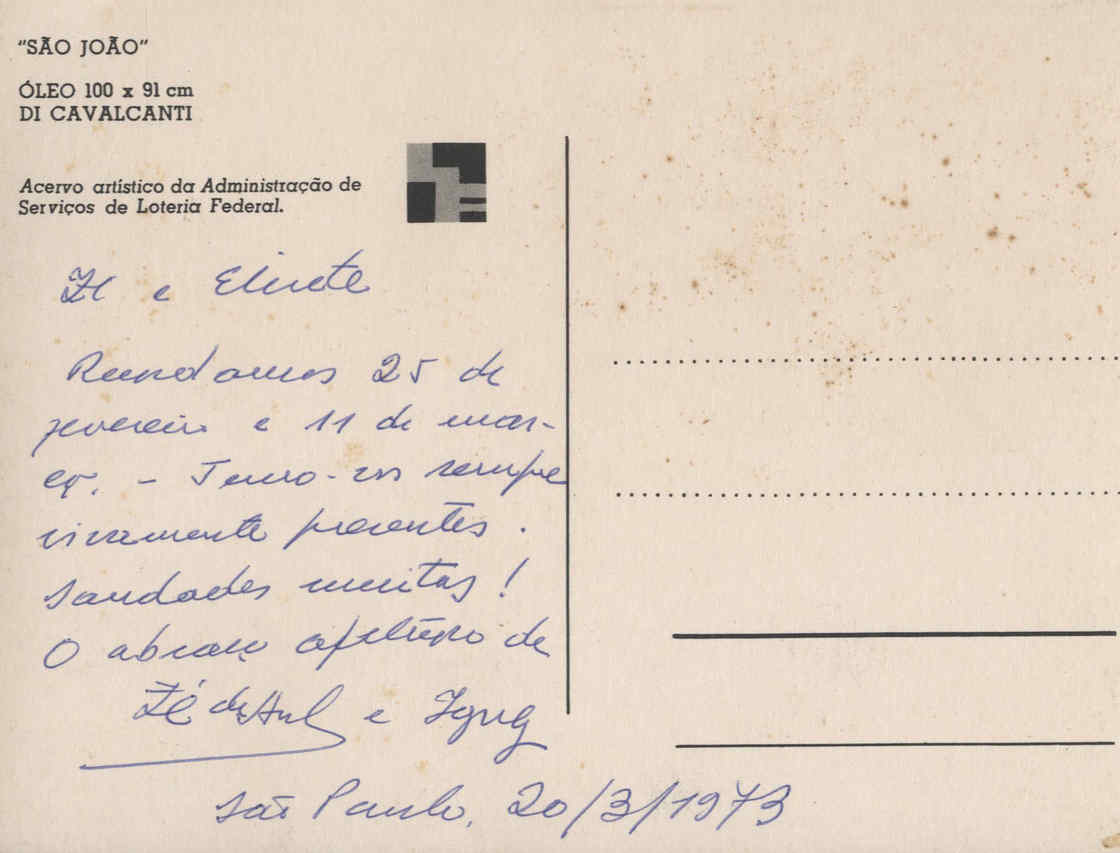 "SÃO JOÃO"
ÓLEO 100 x 91 cm
DI CAVALCANTI
Acervo artístico da Administração de
Serviços de Loteria Federal.
Zé e Elizete
25 de
fevereiro e 11 de mar-
ço. - Temo-vos sempre
vivamente presentes.
Saudades muitas!
O abraço afetuoso de
Zé e
São Paulo, 20/3/1973